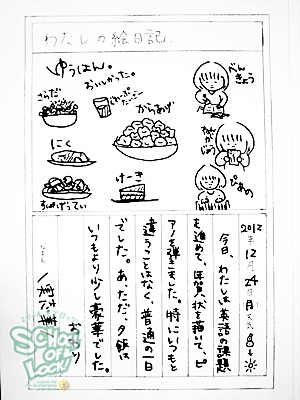 わたしの絵日記
ゆうはん。
おいしかった。
さらだ
からあげ
にく
けーき
すぱげってぃ
べんきょう
ねんがじょう
ぴあの
2012年12月24日月
今日、わたしは英語の課題
を進めて、年賀状を描いて、ピ
アノを弾きました。特にいつもと
違うことはなく、普通の一日
でした。あ、ただ、夕飯は
いつもより少し豪華でした。
おわり
なまえ
SCHOOL OF LOCK!